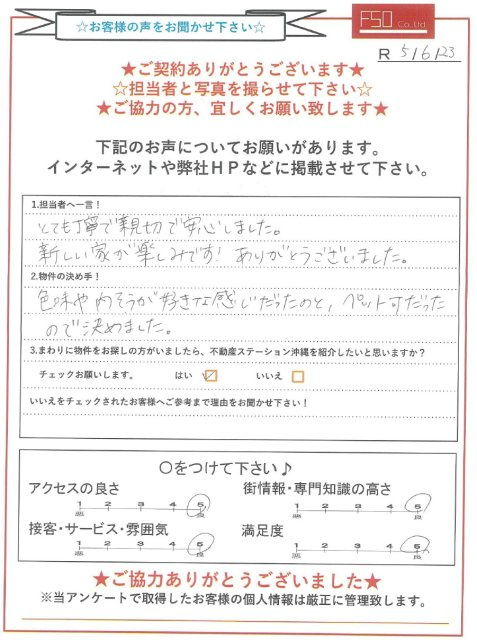 ☆お客様の声をお聞かせ下さい☆
FSO Co.Ltd
R 5/6/23
★ご契約ありがとうございます★
☆担当者と写真を撮らせて下さい☆
★ご協力の方、宜しくお願い致します★
下記のお声についてお願いがあります。
インターネットや弊社HPなどに掲載させて下さい。
1.担当者へ一言！
とても丁寧で親切で安心しました。
新しい家が楽しみです！ありがとうございました。
2.物件の決め手！
色味や内そうが好きな感じだったのと，ペット可だった
ので決めました。
3.まわりに物件をお探しの方がいましたら、不動産ステーション沖縄を紹介したいと思いますか？
チェックお願いします。 はい ☑ いいえ □
いいえをチェックされたお客様へご参考まで理由をお聞かせ下さい！
〇をつけて下さい♪
アクセスの良さ
1 2 3 4 5
悪 良
街情報・専門知識の高さ
1 2 3 4 5
悪 良
接客・サービス・雰囲気
1 2 3 4 5
悪 良
満足度
1 2 3 4 5
悪 良
★ご協力ありがとうございました★
※当アンケートで取得したお客様の個人情報は厳正に管理致します。